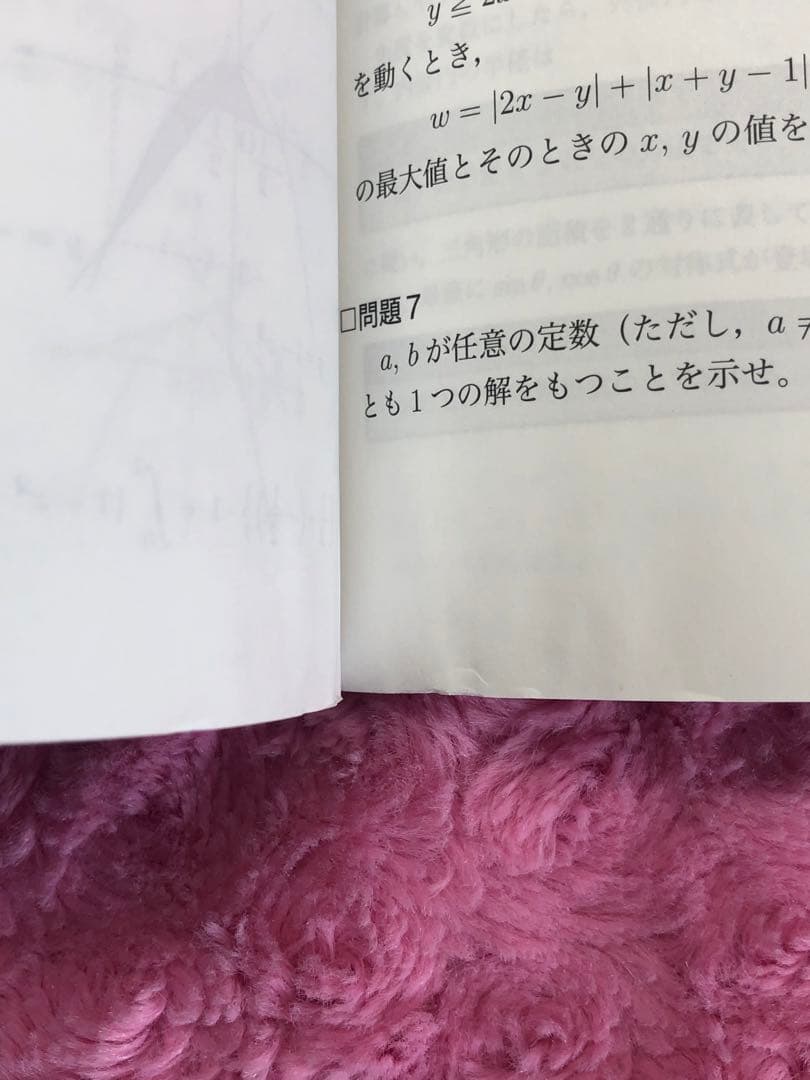 y ≧ 2
を動くとき，
w = |2x − y| + |x + y − 1|
の最大値とそのときの x, y の値を
□問題7
a, b が任意の定数（ただし，a ≠
とも1つの解をもつことを示せ。